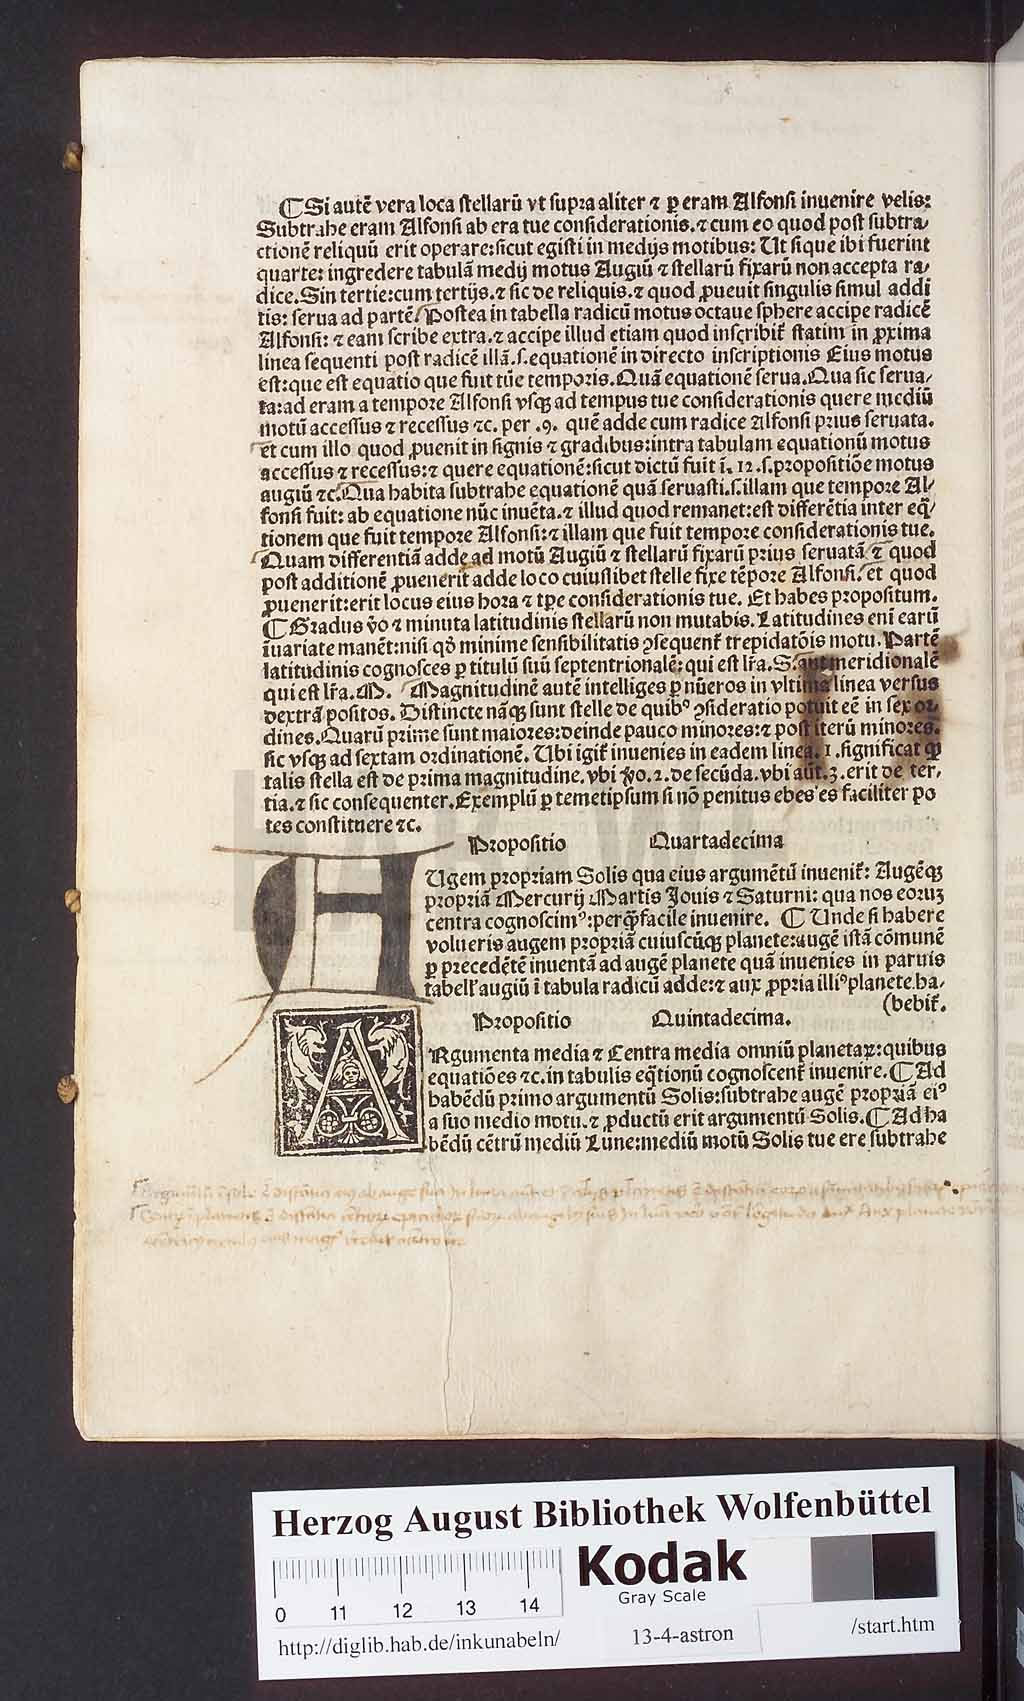 ¶ Si autē vera loca stellarū vt supra aliter ⁊ ꝑ eram Alfonsi inuenire velis:
Subtrahe eram Alfonsi ab era tue considerationis.⁊ cum eo quod post subtra⸗
ctionē reliquū erit operare:sicut egisti in medijs motibus: Ut si que ibi fuerint
quarte: ingredere tabulā medij motus Augiū ⁊ stellarū fixarū non accepta ra⸗
dice. Sin tertie:cum tertijs.⁊ sic de reliquis.⁊ quod ꝓueuit singulis simul addi
tis: serua ad partē. Postea in tabella radicū motus octaue sphere accipe radicē
Alfonsi: ⁊ eam scribe extra.⁊ accipe illud etiam quod inscribit̄ statim in ꝓxima
linea sequenti post radicē illā.s.equationē in directo inscriptionis Eius motus
est:que est equatio que fuit tūc temporis. Quā equationē serua. Qua sic serua⸗
ta:ad eram a tempore Alfonsi vsqꝫ ad tempus tue considerationis quere mediū
motū accessus ⁊ recessus ⁊c. per .9. quē adde cum radice Alfonsi prius seruata.
et cum illo quod ꝓuenit in signis ⁊ gradibus:intra tabulam equationū motus
accessus ⁊ recessus:⁊ quere equationē:sicut dictū fuit ī. 12 .s.propositiōe motus
augiū ⁊c. Qua habita subtrahe equationē quā seruasti.s.illam que tempore Al⸗
fonsi fuit: ab equatione nūc inuēta.⁊ illud quod remanet:est differētia inter eq̄⸗
tionem que fuit tempore Alfonsi:⁊ illam que fuit tempore considerationis tue.
Quam differentiā adde ad motū Augiū ⁊ stellarū fixarū prius seruatā ⁊ quod
post additionē ꝓuenerit adde loco cuiuslibet stelle fixe tēpore Alfonsi. et quod
ꝓuenerit:erit locus eius hora ⁊ tꝑe considerationis tue. Et habes propositum.
¶ Gradus v̄o ⁊ minuta latitudinis stellarū non mutabis. Latitudines eni earū
īuariate manēt:nisi qd̄ minime sensibilitatis ꝯsequent̄ trepidatōis motu. Partē
latitudinis cognosces ꝑ titulū suū septentrionalē: qui est lr̄a. S. aut meridionalē
qui est lr̄a. M. Magnitudinē autē intelliges ꝑ nūeros in vltima linea versus
dextrā positos. Distincte nāqꝫ sunt stelle de quibꝰ ꝯsideratio potuit eē in sex or⸗
dines. Quarū prime sunt maiores:deinde pauco minores:⁊ post iterū minores.
sic vsqꝫ ad sextam ordinationē. Ubi igit̄ inuenies in eadem linea. 1 .significat ꝙ
talis stella est de prima magnitudine. vbi v̄o. 2. de secūda. vbi aūt. 3. erit de ter⸗
tia.⁊ sic consequenter. Exemplū ꝑ temetipsum si nō penitus ebes es faciliter po
tes constituere ⁊c.
Propositio Quartadecima
AUgem propriam Solis qua eius argumētū inuenit̄: Augēqꝫ
propriā Mercurij Martis Jouis ⁊ Saturni: qua nos eoruꝫ
centra cognoscimꝰ:perq̄facile inuenire. ¶ Unde si habere
volueris augem propriā cuiuscūqꝫ planete:augē istā cōmunē
ꝑ precedētē inuentā ad augē planete quā inuenies in paruis
tabell̄ augiū ī tabula radicū adde:⁊ aux ꝓpria illiꝰ planete.ha⸗
(bebit̄.
Propositio Quintadecima.
ARgumenta media ⁊ Centra media omniū planetaꝝ:quibus
equatiōes ⁊c.in tabulis eq̄tionū cognoscent̄ inuenire. ¶ Ad
habēdū primo argumentū Solis:subtrahe augē propriā eiꝰ
a suo medio motu.⁊ ꝓductū erit argumentū Solis. ¶ Ad ha
bēdū cētrū mediū Lune:mediū motū Solis tue ere subtrahe
Herzog August Bibliothek Wolfenbüttel
Kodak
Gray Scale
0 11 12 13 14
http://diglib.hab.de/inkunabeln/
13-4-astron
/start.htm